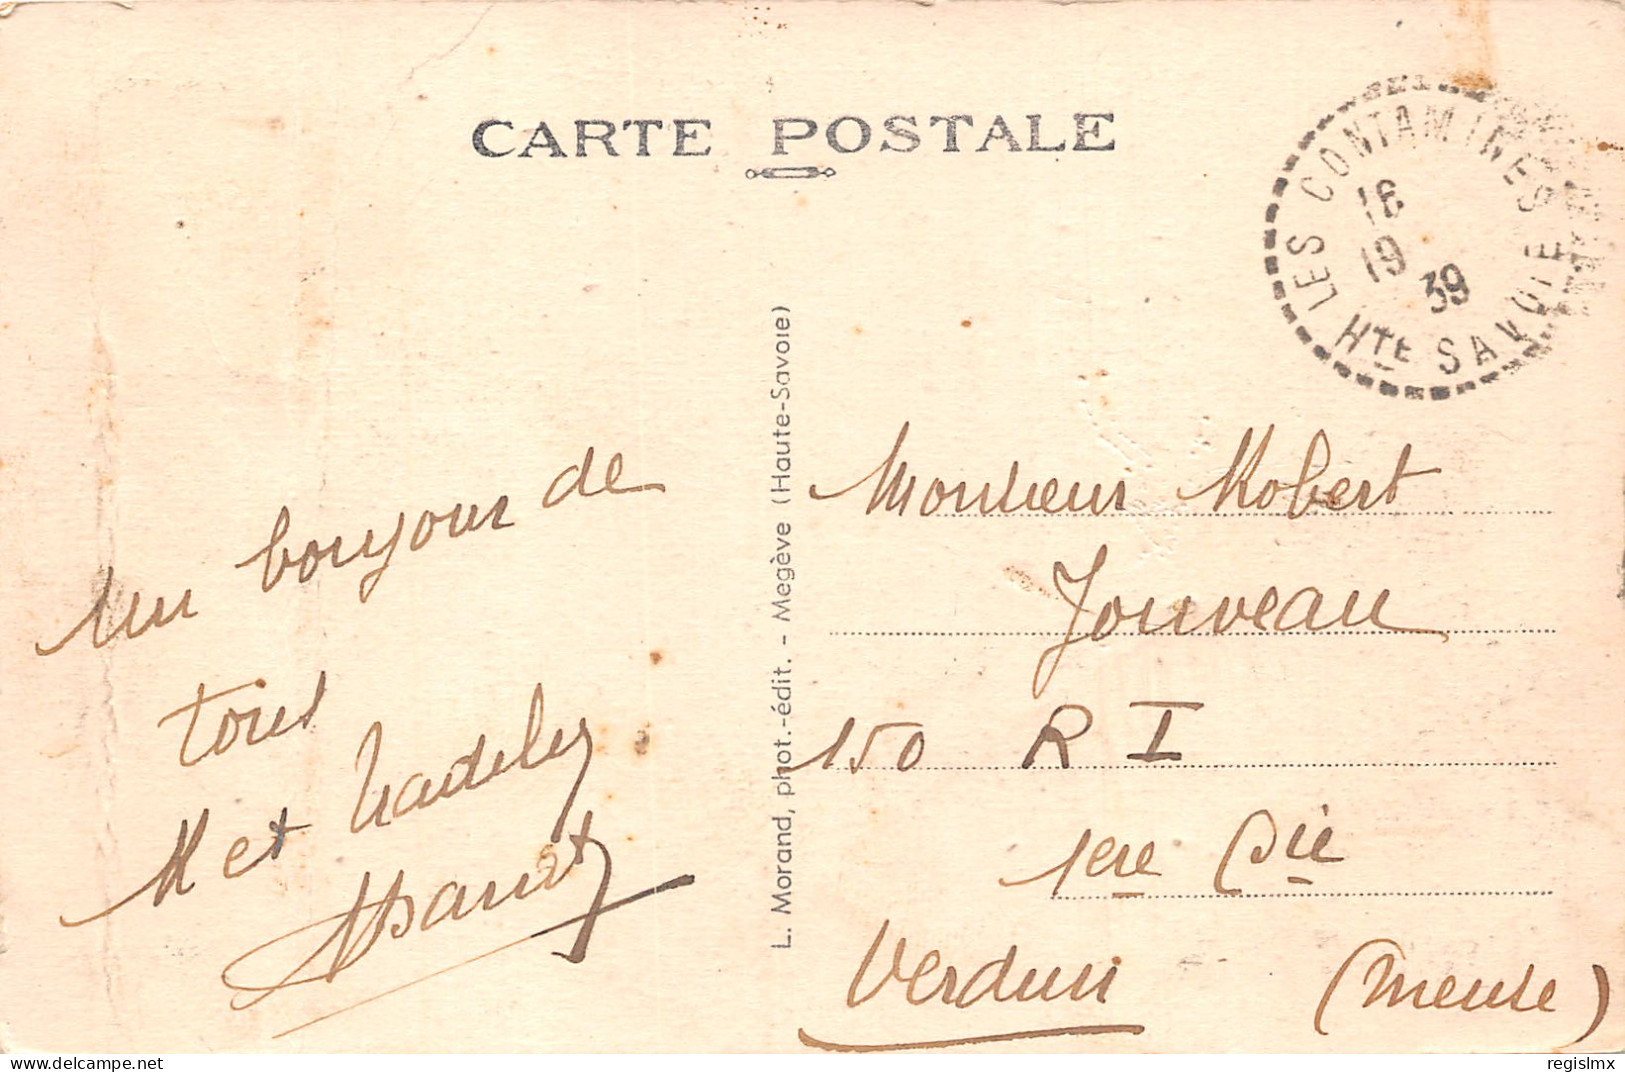 CARTE POSTALE
LES CONTAMINES
18
19 39
HTE SAVOIE
Un bonjour de
tous
et
L. Morand, phot.-édit. - Megève (Haute-Savoie)
Monsieur Robert
Jouveau
150 R I
1ere Cie
Verdun (Meuse)
delcampe.net
regislmx